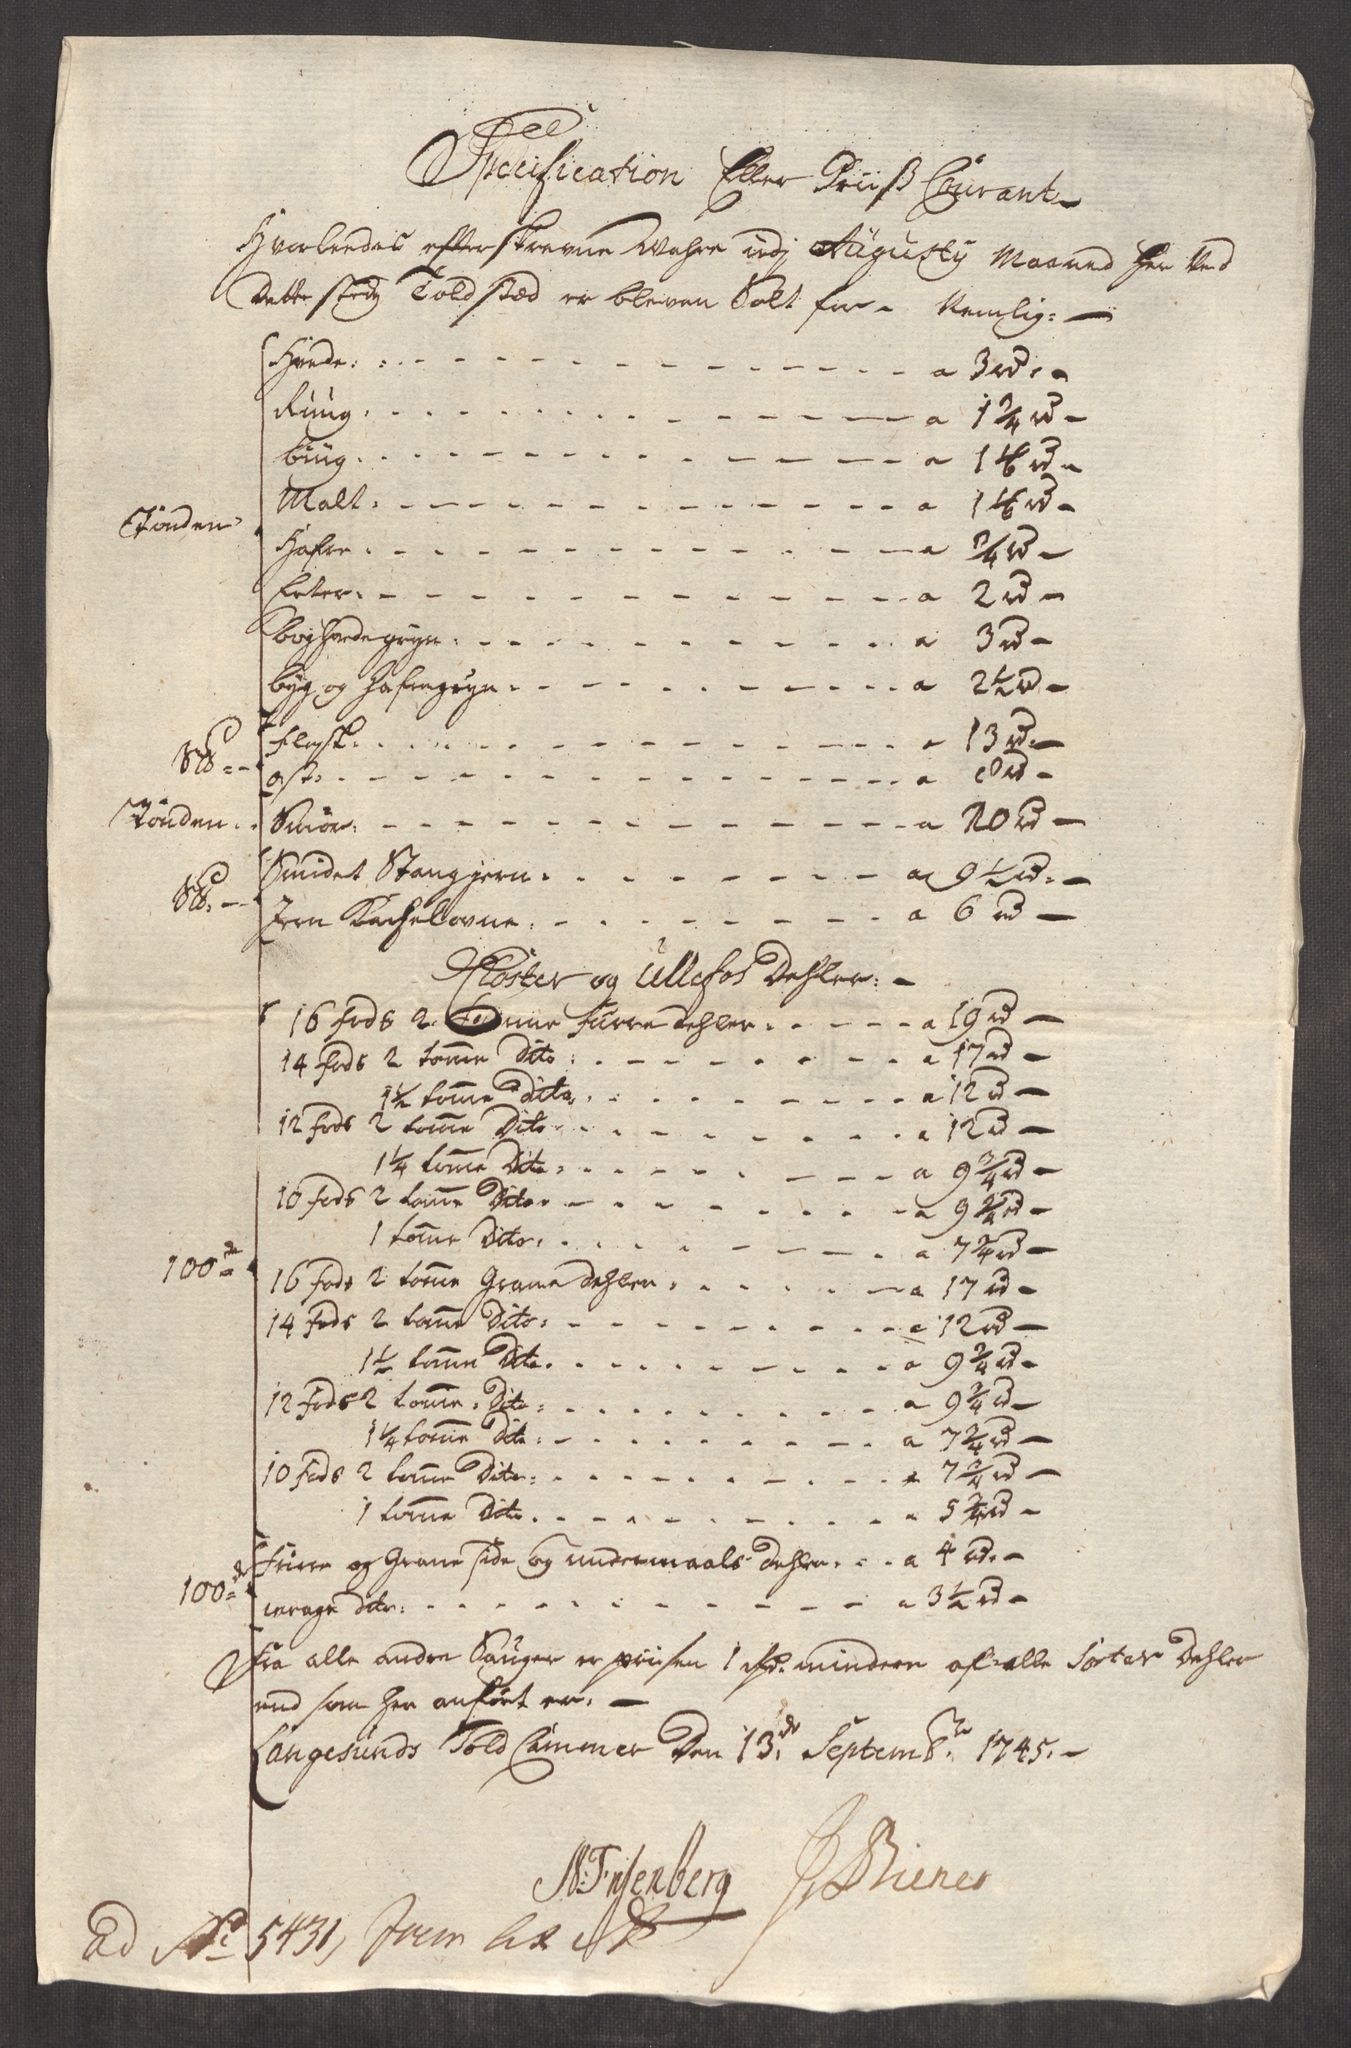 Specification Eller Priiß Courant
Hvorleedes efterskrevne Wahre udj Augusty Maaned her Ved
Dette steds Toldstæd er bleven Solt for Nemlig:
Hvede: a 3 rd
Rüüg. a 1 3/4 rd
büüg. a 1 1/6 rd
Malt: a 1 1/6 rd
Tönden
Hafre. a 3/4 rd
Erter. a 2 rd
boghvedegryn. a 3 rd
byg og hafregryn. a 2 1/2 rd
Flesk. a 13 rd
Slb
ost: a 8 rd
Tönden Smör. a 10 rd
Smidet Stangjern. a 9 1/2 rd
Slb.
Jern Kachelovne. a 6 rd
Closter og Ullefos Dehler:
16 fods 2 tomme Furre dehler. a 19 rd
14 fods 2 tomme Dito a 17 rd
1 1/2 tomme Dito a 12 rd
12 fods 2 tomme Dito a 12 rd
1 1/4 tomme Dito a 9 3/4 rd
10 fods 2 tomme Dito a 9 3/4 rd
1 tomme Dito. a 7 3/4 rd
100de
16 fods 2 tomme Grane dehler. a 17 rd
14 fods 2 tomme Dito a 12 rd
1 1/2 tomme Dito. a 9 3/4 rd
12 fods 2 tomme Dito a 9 3/4 rd
1 1/4 tomme Dito a 7 3/4 rd
10 fods 2 tomme Dito a 7 3/4 rd
1 tomme Dito a 5 3/4 rd
Furre og Grane side og undermaals dehler. a 4 rd
100de
wrage dito. a 3 1/2 rd
Fra alle andre Sauger er priisen 1 rd mindere af alle Sorter Dehler
end som her anfört er.
Langesunds Told Cammer Den 13de Septembr 1745.
N: Insenberg Biener
Ad No 5431